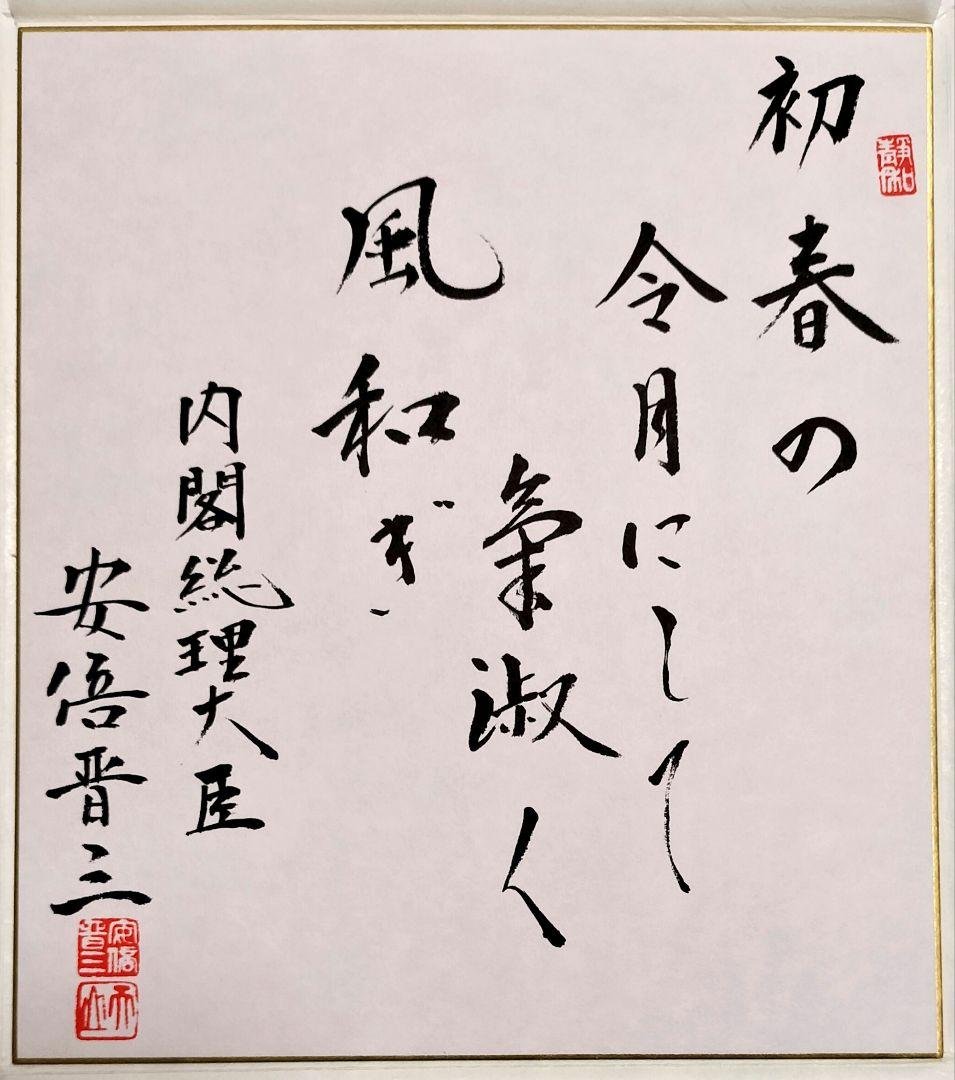 初春の
令月にして
氣淑く
風和ぎ
内閣総理大臣
安倍晋三
安倍晋三